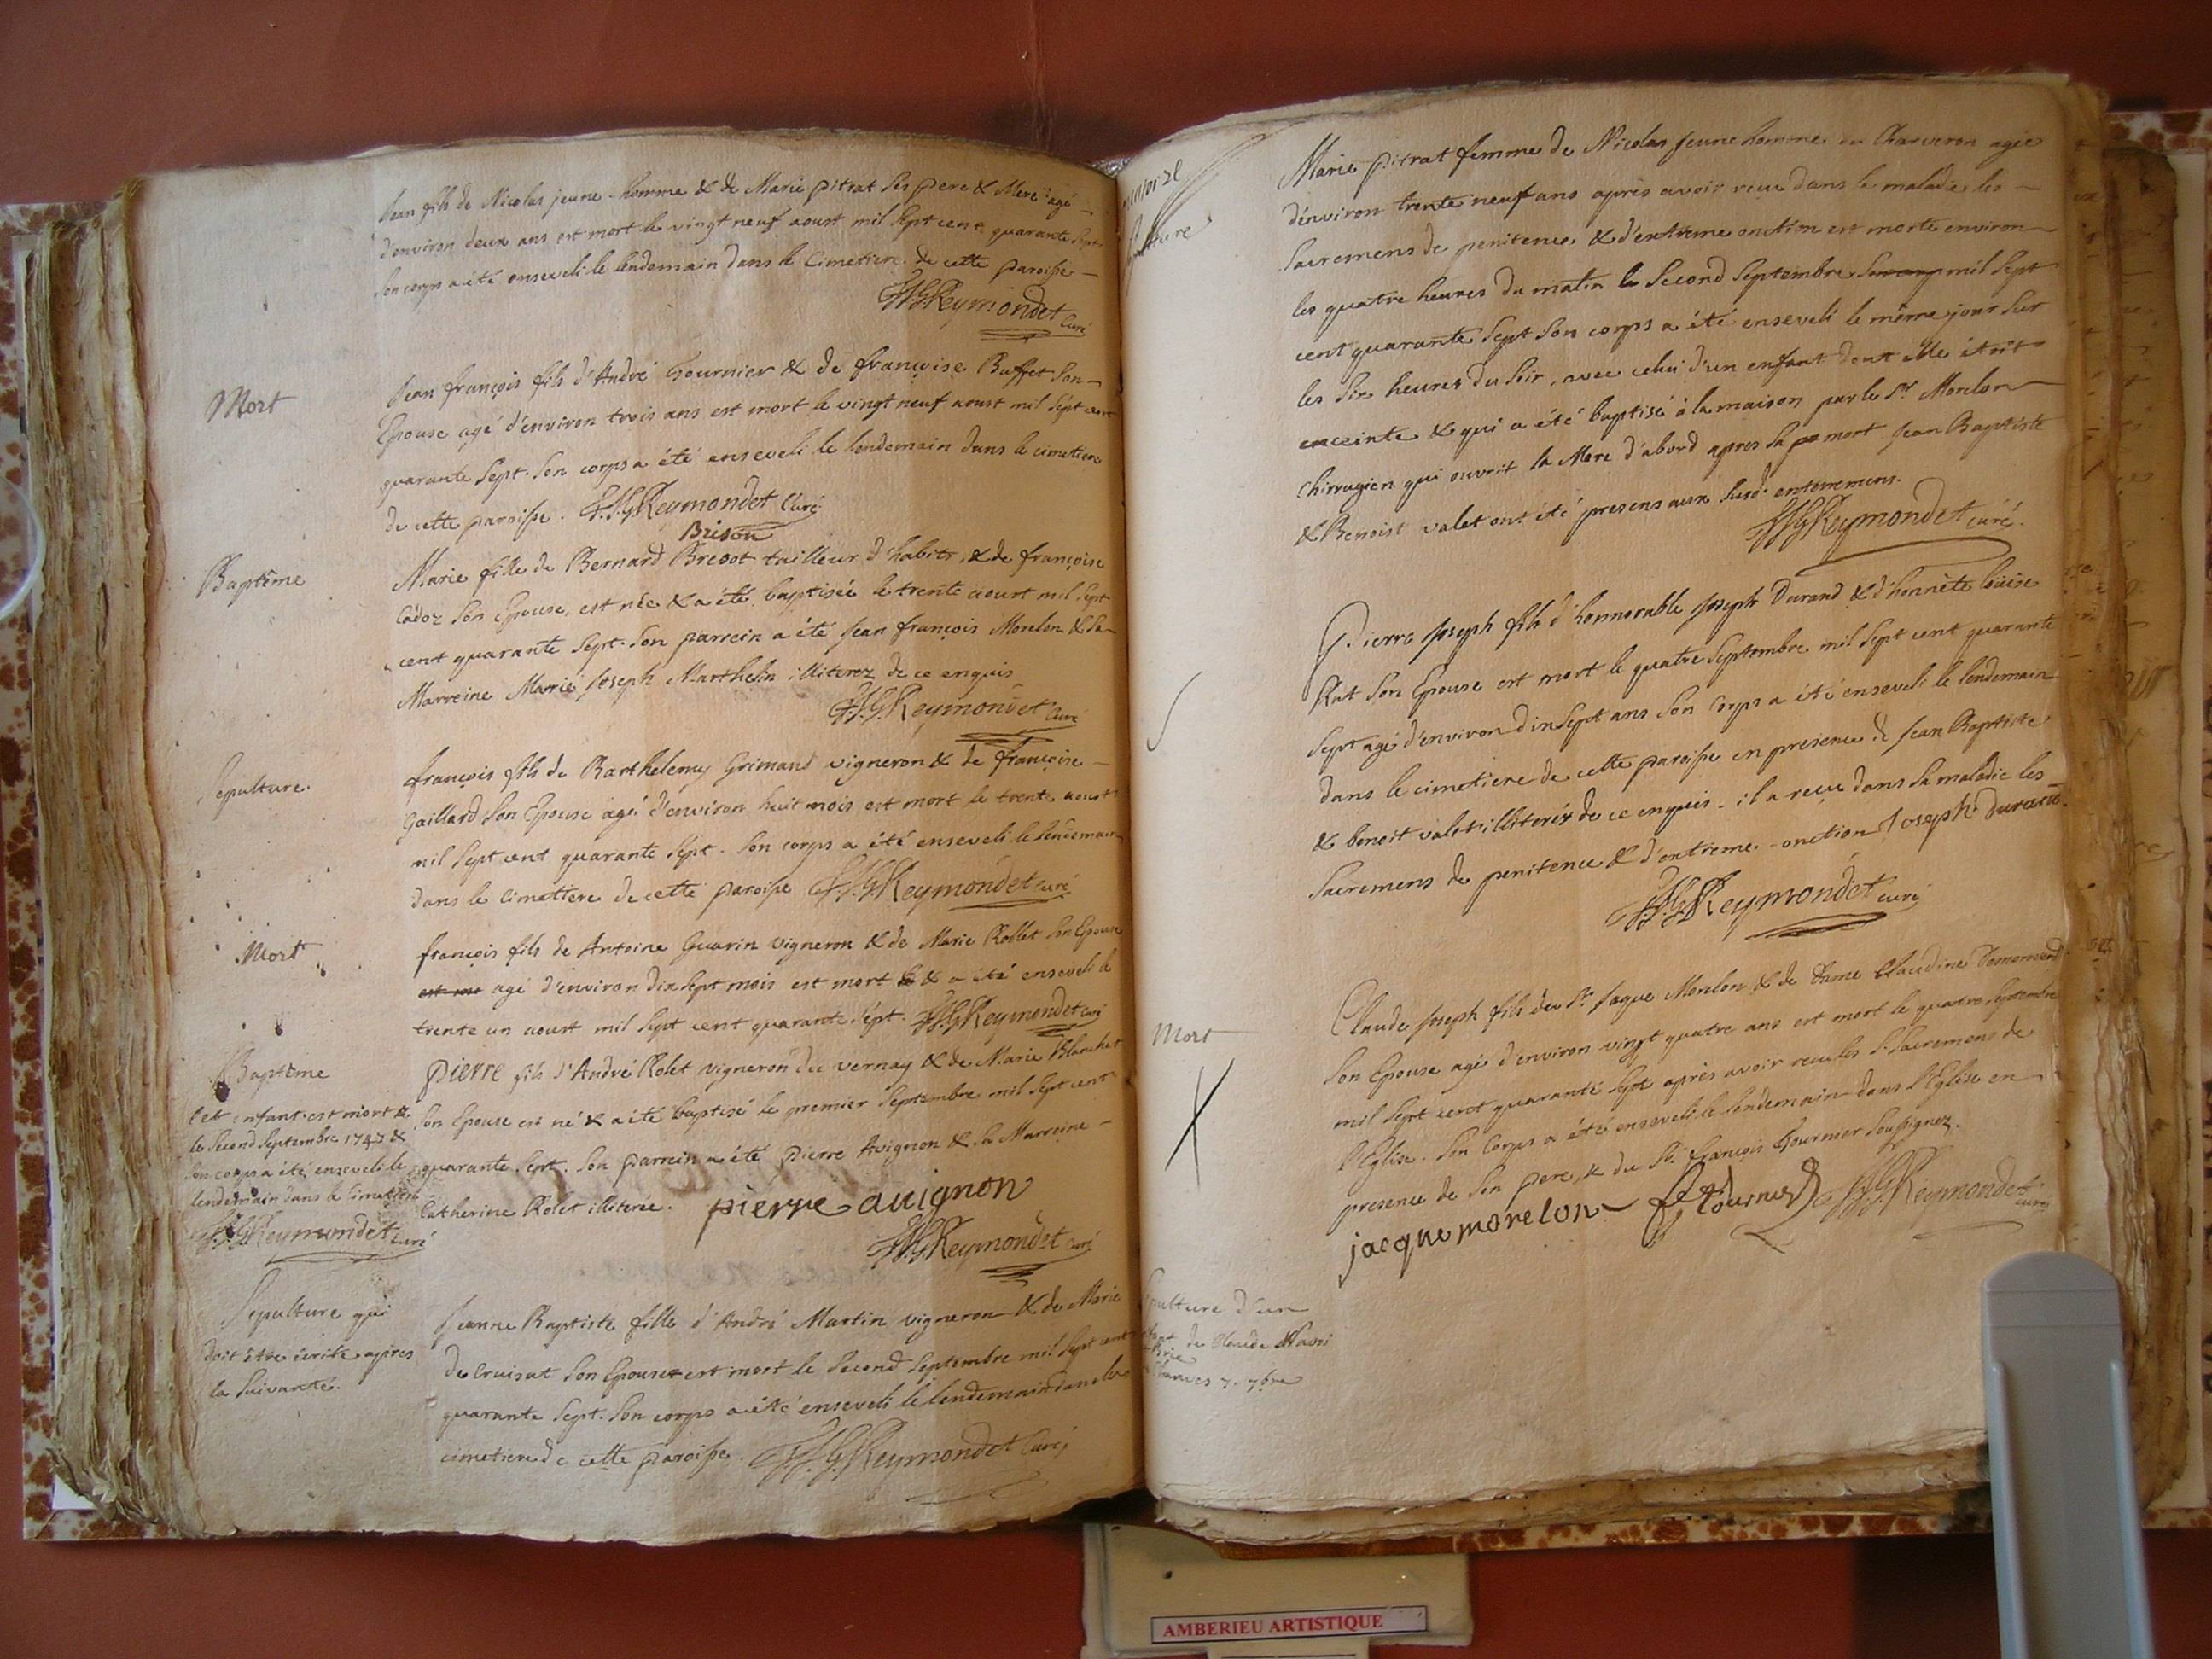 Jean fils de Nicolas jeune-homme & de Marie pitrat ses pere & Mere agé
d'environ deux ans est mort le vingt neuf aoust mil sept cent quarante sept
son corps a été enseveli le lendemain dans le Cimetiere de cette paroisse
Reymondet Curé
Mort
Jean françois fils d'André Tournier & de françoise Buffet son
Epouse agé d'environ trois ans est mort le vingt neuf aoust mil sept cent
quarante sept. son corps a été enseveli le lendemain dans le cimetiere
de cette paroisse. Reymondet Curé
Brison
Baptême
Marie fille de Bernard Bresot tailleur d'habits, & de françoise
Cadoz son Epouse, est née & a été baptisée le trente aoust mil sept
cent quarante sept. son parrein a été Jean françois Morelon & sa
Marreine Marie Joseph Marthelin illiterez de ce enquis
Reymondet Curé
Sepulture.
françois fils de Barthelemy Grimand vigneron & de françoise
Gaillard son Epouse agé d'environ huit mois est mort le trente aoust
mil sept cent quarante sept. son corps a été enseveli le lendemain
dans le Cimettere de cette paroisse Reymondet curé
Mort
françois fils de Antoine Guarin vigneron & de Marie Rollet son Epouse
agé d'environ dix sept mois est mort & a été enseveli le
trente un aoust mil sept cent quarante sept. Reymondet curé
Baptême
pierre fils d'André Rolet vigneron du vernay & de Marie Blanchet
son Epouse est né & a été baptisé le premier Septembre mil sept cent
quarante sept. son parrein a été Pierre Avignon & sa Marreine
Catherine Rolet illiterée. pierre auignon
Reymondet curé
Cet enfant est mort
le second septembre 1747 &
son corps a été enseveli le
lendemain dans le Cimetiere
Reymondet curé
Sepulture qui
doit être écrite apres
la suivante.
Jeanne Baptiste fille d'André Martin vigneron & de Marie
de Cruisat son Epouse est mort le second septembre mil sept cent
quarante sept. son corps a été enseveli le lendemain dans le
cimetiere de cette paroisse. Reymondet Curé
Marie pitrat femme de Nicolas jeunehomme du Charveron agée
d'environ trente neuf ans après avoir reçu dans la maladie les
sacremens de penitence & d'extreme onction est morte environ
les quatre heures du matin le second septembre mil sept
cent quarante sept son corps a été enseveli le même jour sur
les six heures du soir, avec celui d'un enfant dont elle étoit
enceinte & qui a été baptisé à la maison par le Sr. Morelon
chirrugien qui ouvrit la Mere d'abord apres sa mort Jean Baptiste
& Benoist valet ont été presens aux susd. enterremens.
Reymondet curé.
Pierre Joseph fils d'honnorable Joseph Durand & d'honnête louise
Rut son Epouse est mort le quatre septembre mil sept cent quarante
sept agé d'environ dix sept ans son Corps a été enseveli le lendemain
dans le cimetiere de cette paroisse en presence de Jean Baptiste
& benoit valet illiteréz de ce enquis. il a reçu dans sa maladie les
sacremens de penitence & d'extreme-onction Joseph durand.
Reymondet curé
Mort
Claude Joseph fils du Sr. Jaque Morelon & de Dame Claudine
son Epouse agé d'environ vingt quatre ans est mort le quatre septembre
mil sept cent quarante sept après avoir reçu les S. sacremens de
l'Eglise. son Corps a été enseveli le lendemain dans l'Eglise en
presence de son pere, & du Sr. françois Tournier soussignez.
jacque morelon Tournier Reymondet curé
Sepulture d'un
de Claude
7. 7bre
AMBERIEU ARTISTIQUE